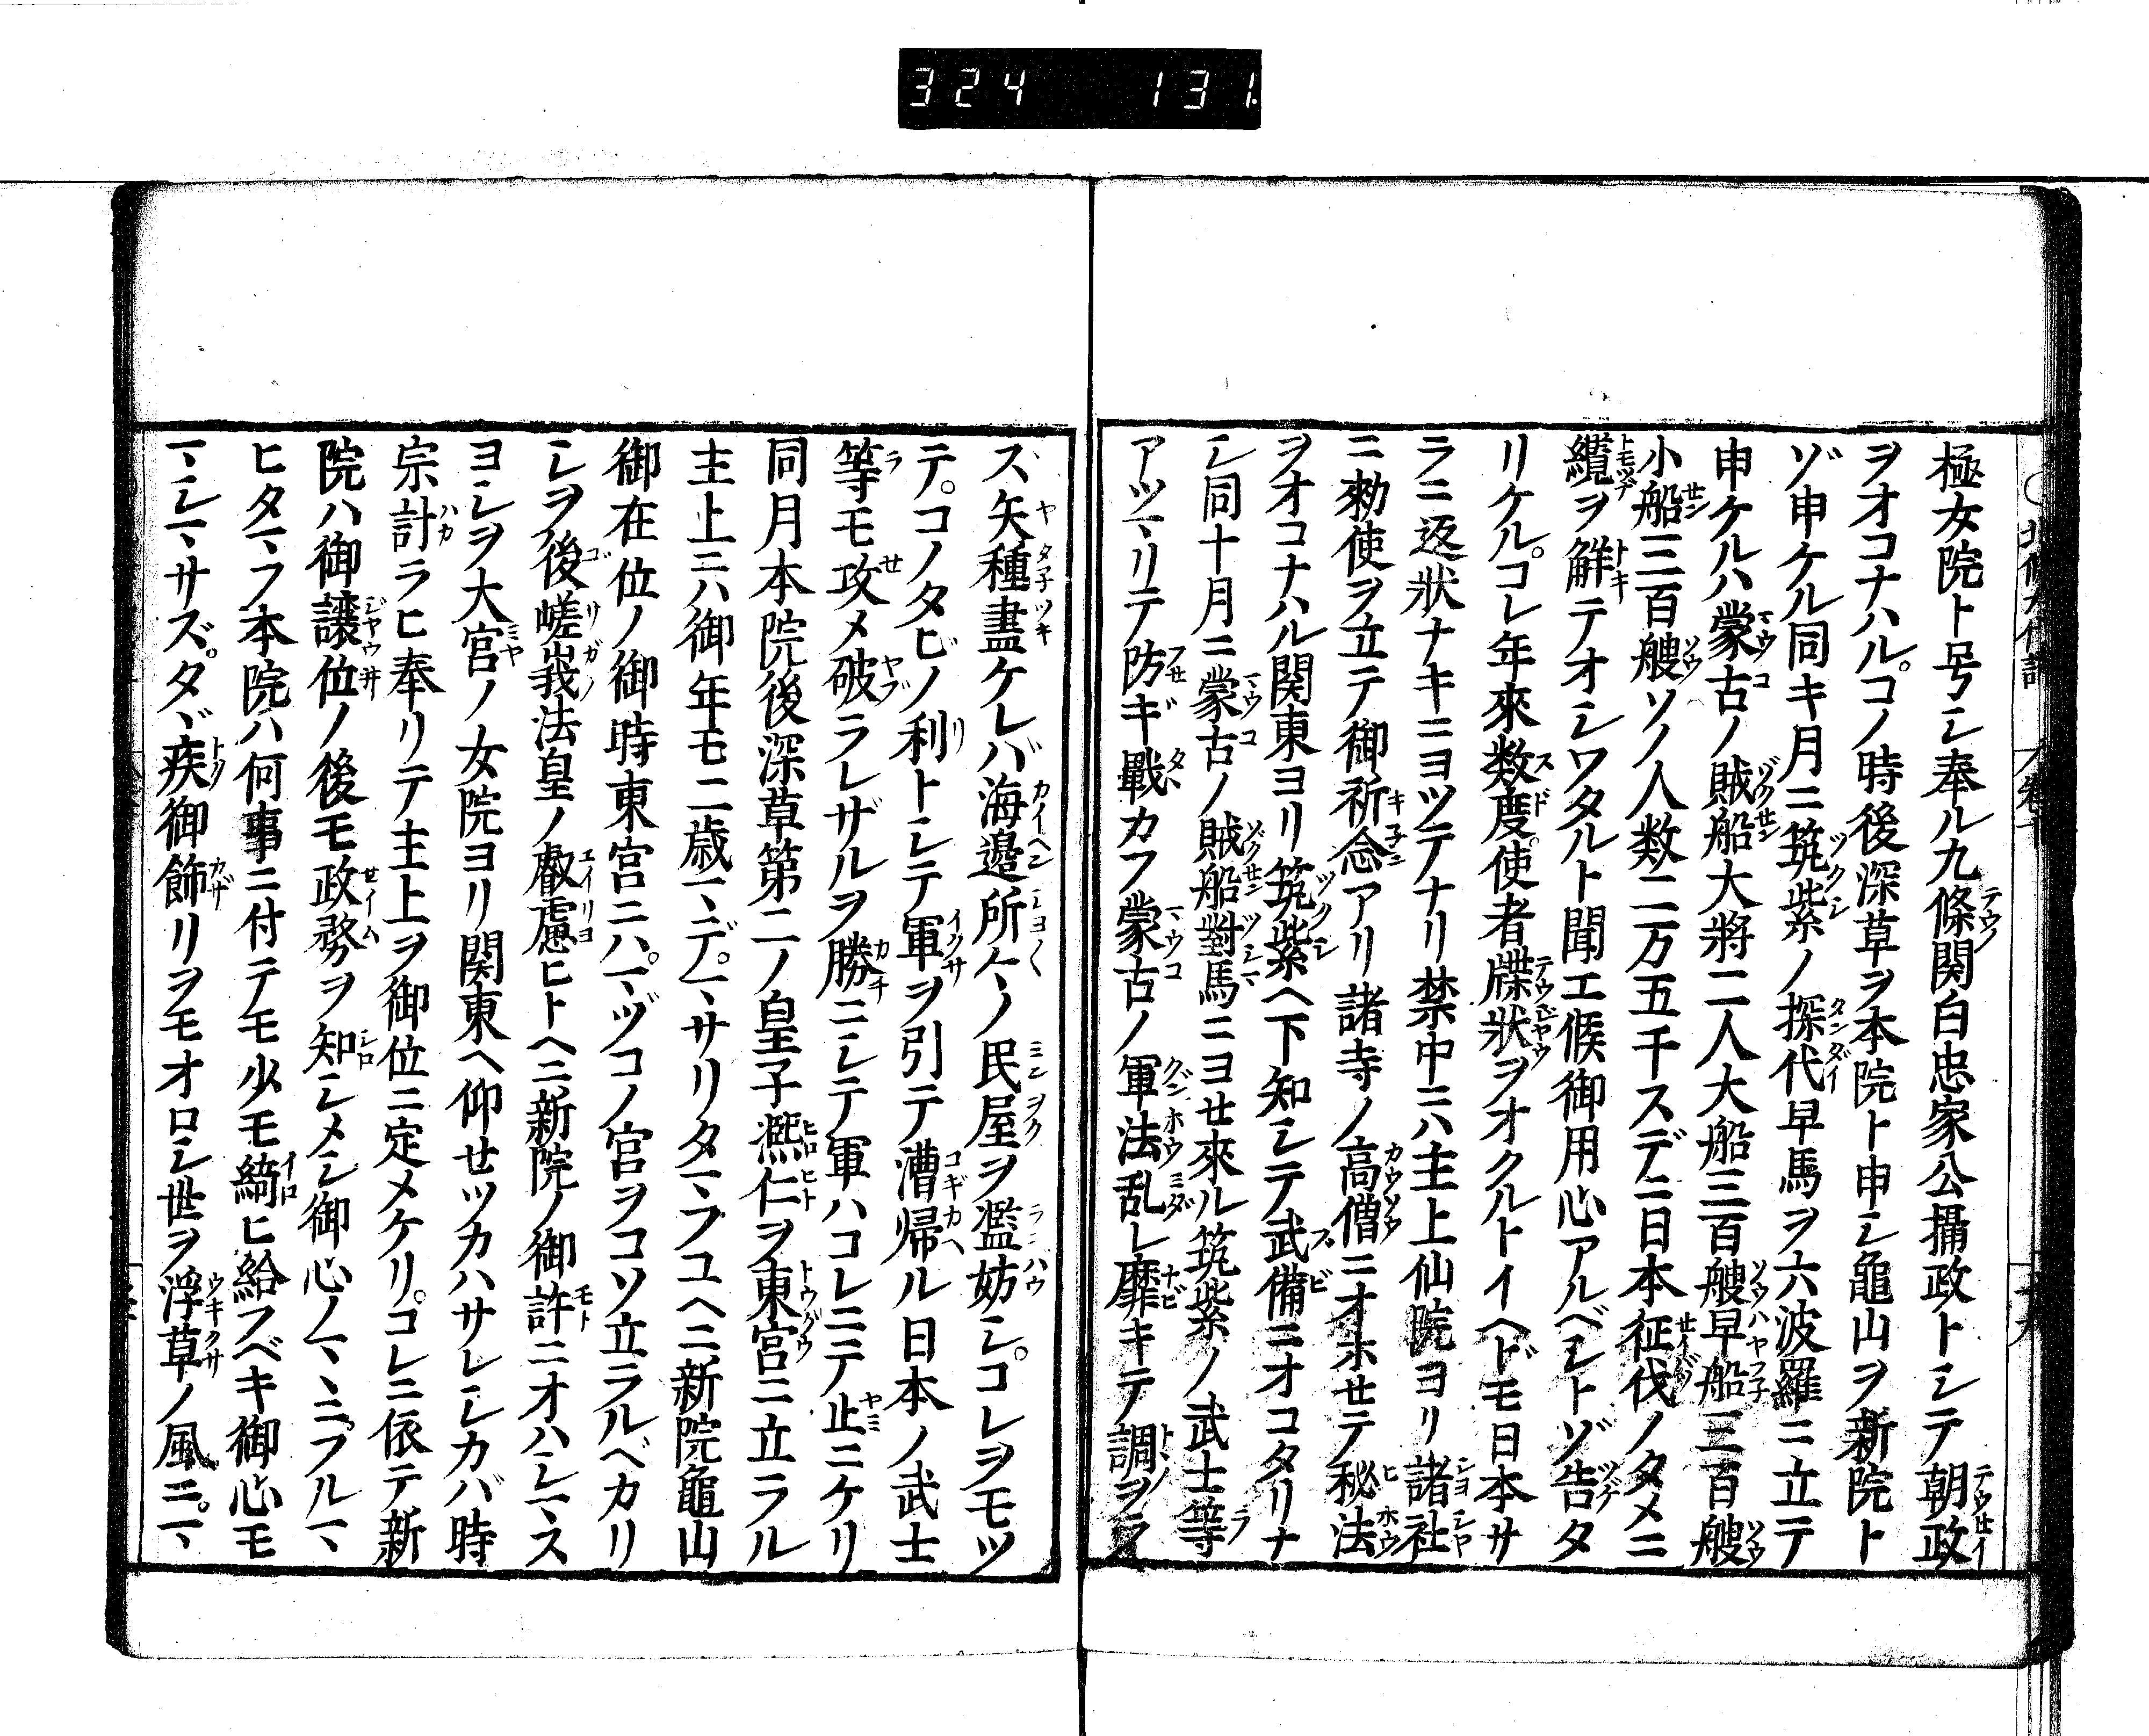 324 131
極女院ト号シ奉ル九條関白忠家公攝政トシテ朝政
ヲオコナハル。コノ時後深草ヲ本院ト申シ龜山ヲ新院ト
ゾ申ケル同キ月ニ筑紫ノ探代早馬ヲ六波羅ニ立テ
申ケルハ蒙古ノ賊船大將二人大船三百艘早船三百艘
小船三百艘ソノ人数二万五千スデニ日本征伐ノタメニ
纜ヲ解テオシワタルト聞エ候御用心アルベシトゾ告タ
リケル。コレ年來数度。使者牒狀ヲオクルトイヘドモ日本サ
ラニ返狀ナキニヨツテナリ禁中ニハ主上仙院ヨリ諸社
ニ勅使ヲ立テ御祈念アリ諸寺ノ高僧ニオホセテ秘法
ヲオコナハル関東ヨリ筑紫ヘ下知シテ武備ニオコタリナ
シ同十月ニ蒙古ノ賊船對馬ニヨセ來ル筑紫ノ武士等
アツマリテ防ギ戰カフ蒙古ノ軍法乱レ靡キテ調ヲラ
ス矢種盡ケレバ海邉所々ノ民屋ヲ濫妨シ。コレヲモツ
テ。コノタビノ利トシテ軍ヲ引テ漕帰ル日本ノ武士
等モ攻メ破ラレザルヲ勝ニシテ軍ハコレニテ止ニケリ
同月本院後深草第二ノ皇子熈仁ヲ東宮ニ立ラル
主上ニハ御年モ二歳マデ。マサリタマフユヘニ新院龜山
御在位ノ御時東宮ニハ。マヅコノ宮ヲコソ立ラルベカリ
シヲ後嵯峩法皇ノ叡慮ヒトヘニ新院ノ御許ニオハシマス
ヨシヲ大宮ノ女院ヨリ関東ヘ仰セツカハサレシカバ時
宗計ラヒ奉リテ主上ヲ御位ニ定メケリ。コレニ依テ新
院ハ御譲位ノ後モ政務ヲ知シメシ御心ノマヽニフルマ
ヒタマフ本院ハ何事ニ付テモ少モ綺ヒ給フベキ御心モ
マシマサズ。タヾ疾御飾リヲモオロシ世ヲ浮草ノ風ニ。マ